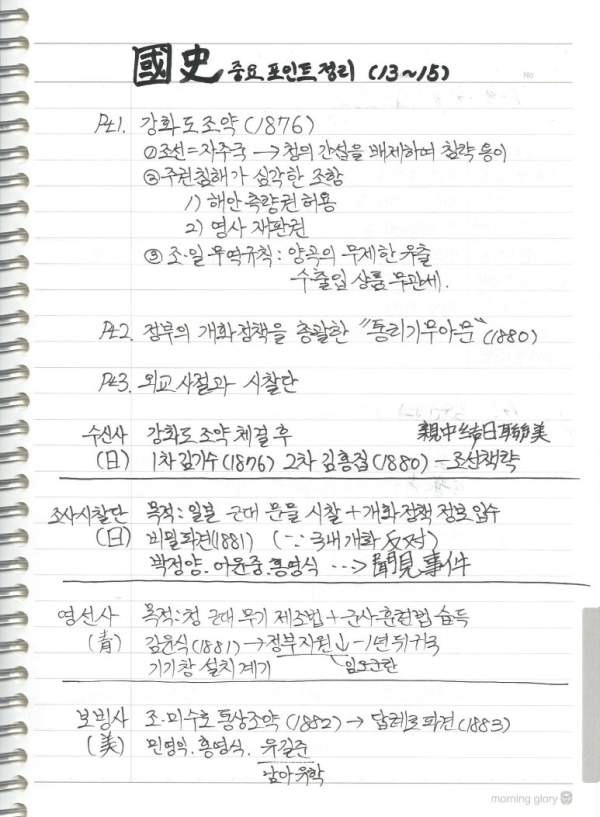 國史 중요 포인트 정리 (13~15)
Pt1. 강화도 조약 (1876)
① 조선 = 자주국 → 청의 간섭을 배제하며 침략 용이
② 주권침해가 심각한 조항
1) 해안 측량권 허용
2) 영사 재판권
③ 조·일 무역규칙 : 양곡의 무제한 유출
수출입 상품 무관세.
Pt2. 정부의 개화정책을 총괄한 "통리기무아문" (1880)
Pt3. 외교 사절과 시찰단
수신사 강화도 조약 체결 후 親中結日聯美
(日) 1차 김기수 (1876) 2차 김홍집 (1880) - 조선책략
조사시찰단 목적 : 일본 근대 문물 시찰 + 개화정책 정보 입수
(日) 비밀파견(1881) (∵ 국내 개화 反対)
박정양. 어윤중. 홍영식 ···> 聞見事件
영선사 목적 : 청 근대 무기 제조법 + 군사 훈련법 습득
(青) 김윤식 (1881) → 정부지원↓ - 1년 뒤 귀국
기기창 설치 계기 임오군란
보빙사 조·미수호통상조약 (1882) → 답례로 파견 (1883)
(美) 민영익. 홍영식. 유길준
남아 유학
morning glory